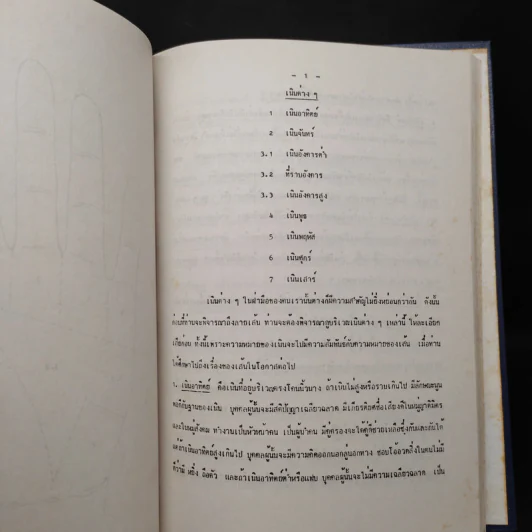 - ๖ -
เนินต่าง ๆ
1 เนินอาทิตย์
2 เนินจันทร์
3.1 เนินอังคารต่ำ
3.2 ที่ราบอังคาร
3.3 เนินอังคารสูง
4 เนินพุธ
5 เนินพฤหัส
6 เนินศุกร์
7 เนินเสาร์
เนินต่าง ๆ ในฝ่ามือของคนเรานั้นต่างก็มีความสำคัญไม่ยิ่งหย่อนกว่ากัน ดังนั้น
ก่อนที่ท่านจะพิจารณาถึงลายเส้น ท่านจะต้องพิจารณาดูบริเวณเนินต่าง ๆ เหล่านี้ ให้ละเอียด
เสียก่อน ทั้งนี้เพราะความหมายของเนินจะไปมีความสัมพันธ์กับความหมายของเส้น เมื่อท่าน
ได้ศึกษาไปถึงเรื่องของเส้นในโอกาสต่อไป
1. เนินอาทิตย์ คือเนินที่อยู่บริเวณตรงโคนนิ้วนาง ถ้าเนินไม่สูงหรือราบเกินไป มีลักษณะนูน
พอดีกับฐานของเนิน บุคคลผู้นั้นจะมีสติปัญญาเฉลียวฉลาด มีเกียรติยศชื่อเสียงดีในหมู่ญาติมิตร
และในหมู่สังคม ทำงานเป็นหัวหน้าคน เป็นผู้นำคน มีคู่ครองจะได้คู่ที่ช่วยเหลือซึ่งกันและกันได้
แต่ถ้าเนินอาทิตย์สูงเกินไป บุคคลผู้นั้นจะมีความคิดออกนอกลู่นอกทาง ชอบโอ้อวดสิ่งในตนไม่มี
ก็ว่ามี หยิ่ง ถือตัว และถ้าเนินอาทิตย์ต่ำหรือแฟบ บุคคลผู้นั้นจะไม่มีความเฉลียวฉลาด เป็น